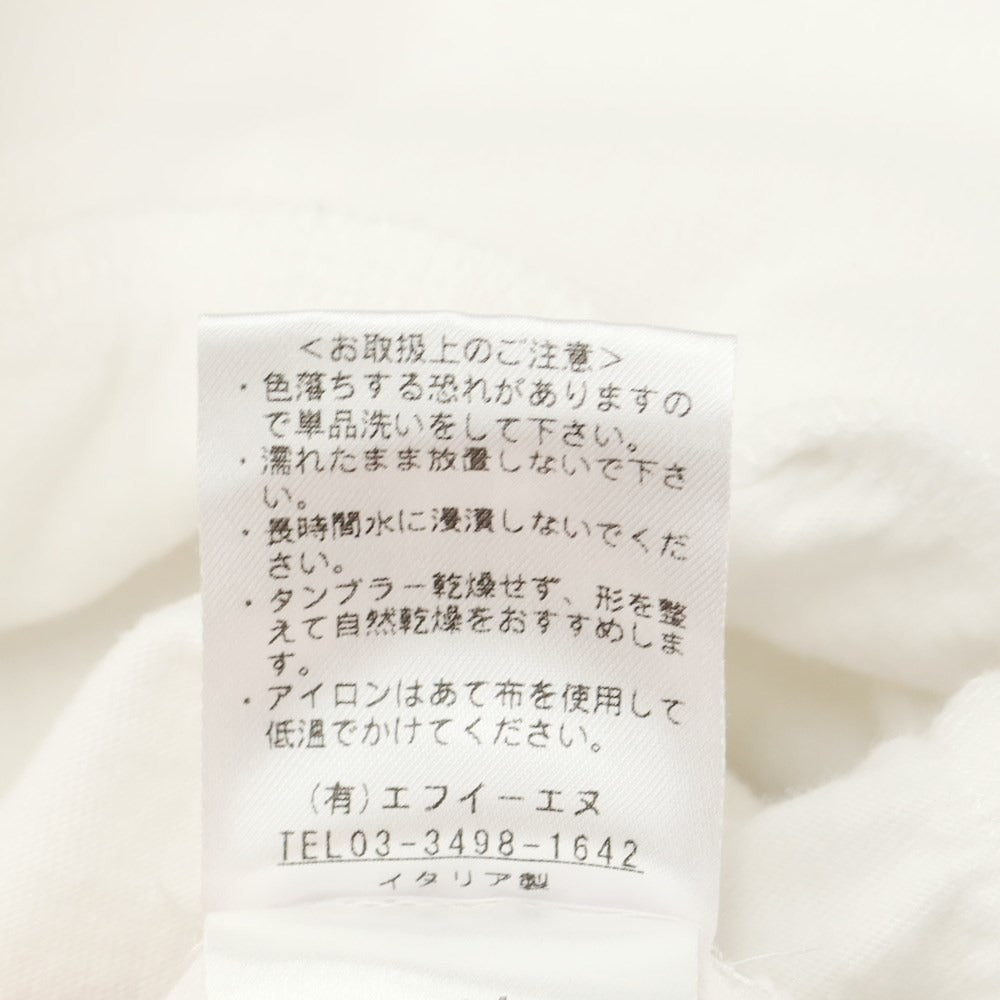 ＜お取扱上のご注意＞
・色落ちする恐れがありますの
で単品洗いをして下さい。
・濡れたまま放置しないで下さ
い。
・長時間水に浸漬しないでくだ
さい。
・タンブラー乾燥せず、形を整
えて自然乾燥をおすすめしま
す。
・アイロンはあて布を使用して
低温でかけてください。
(有)エフイーエヌ
TEL03-3498-1642
イタリア製